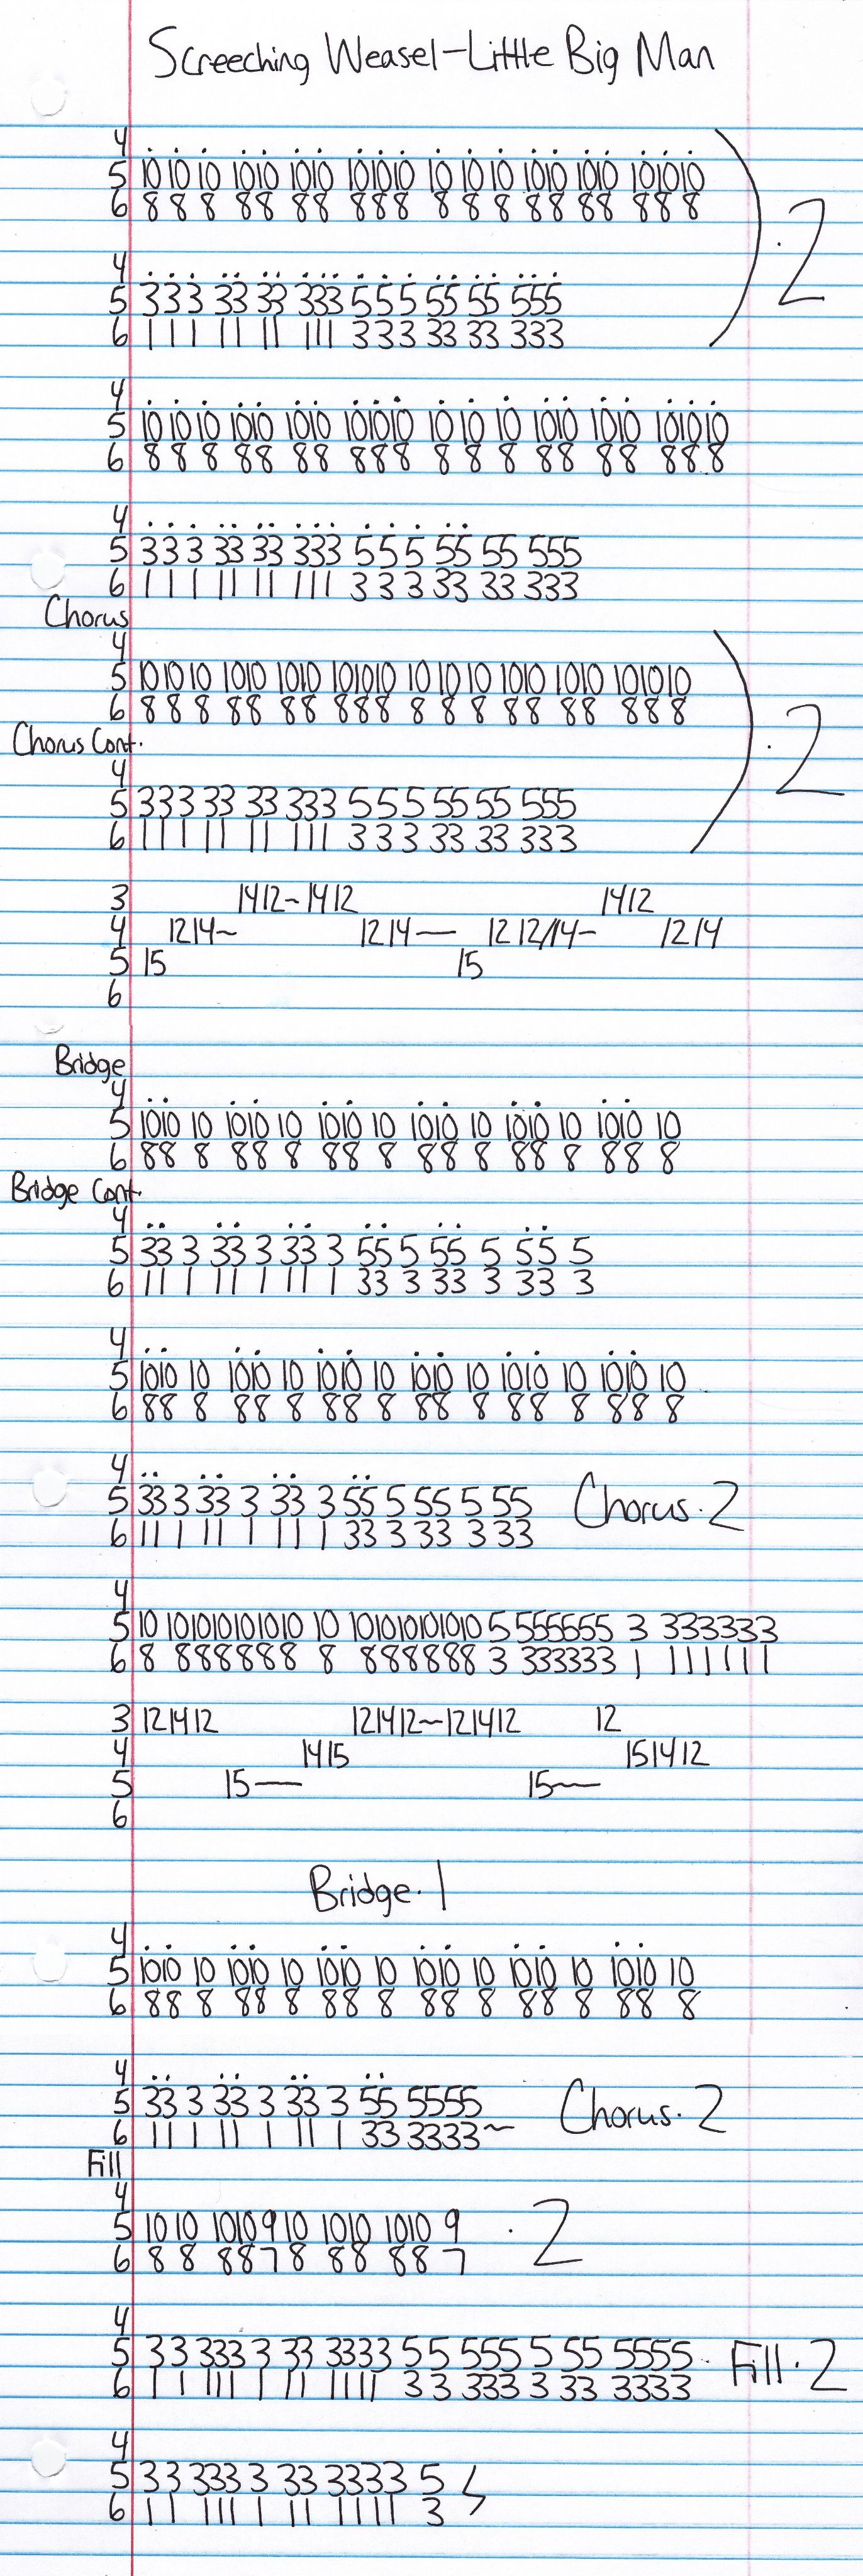 Screeching Weasel-Little Big Man
4
5 10 10 10 1010 1010 101010 10 10 10 1010 1010 101010
6 8 8 8 88 88 888 8 8 8 88 88 888
4
5 3 3 3 33 33 333 5 5 5 55 55 555
6 1 1 1 11 11 111 3 3 3 33 33 333
) · 2
4
5 10 10 10 1010 1010 101010 10 10 10 1010 1010 101010
6 8 8 8 88 88 888 8 8 8 88 88 888
4
5 3 3 3 33 33 333 5 5 5 55 55 555
6 1 1 1 11 11 111 3 3 3 33 33 333
Chorus
4
5 10 10 10 1010 1010 101010 10 10 10 1010 1010 101010
6 8 8 8 88 88 888 8 8 8 88 88 888
Chorus Cont.
4
5 3 3 3 33 33 333 5 5 5 55 55 555
6 1 1 1 11 11 111 3 3 3 33 33 333
) · 2
3 14 12~ 14 12 14 12
4 12 14~ 12 14— 12 12/14~ 12 14
5 15 15
6
Bridge
4
5 1010 10 1010 10 1010 10 1010 10 1010 10 1010 10
6 88 8 88 8 88 8 88 8 88 8 88 8
Bridge Cont.
4
5 33 3 33 3 33 3 55 5 55 5 55 5
6 11 1 11 1 11 1 33 3 33 3 33 3
4
5 1010 10 1010 10 1010 10 1010 10 1010 10 1010 10
6 88 8 88 8 88 8 88 8 88 8 88 8
4
5 33 3 33 3 33 3 55 5 55 5 55 Chorus · 2
6 11 1 11 1 11 1 33 3 33 3 33
4
5 10 101010101010 10 101010101010 5 555555 3 333333
6 8 888888 8 888888 3 333333 1 111111
3 12 14 12 12 14 12~12 14 12 12
4 14 15 15 14 12
5 15— 15~
6
Bridge · 1
4
5 1010 10 1010 10 1010 10 1010 10 1010 10 1010 10
6 88 8 88 8 88 8 88 8 88 8 88 8
4
5 33 3 33 3 33 3 55 5555 Chorus · 2
6 11 1 11 1 11 1 33 3333~
Fill
4
5 10 10 1010 9 10 1010 1010 9 · 2
6 8 8 88 7 8 88 88 7
4
5 3 3 333 3 33 3333 5 5 555 5 55 5555 Fill · 2
6 1 1 111 1 11 1111 3 3 333 3 33 3333
4
5 3 3 333 3 33 3333 5
6 1 1 111 1 11 1111 3